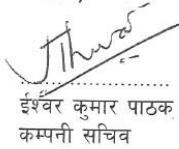 ईश्वर कुमार पाठक
कम्पनी सचिव